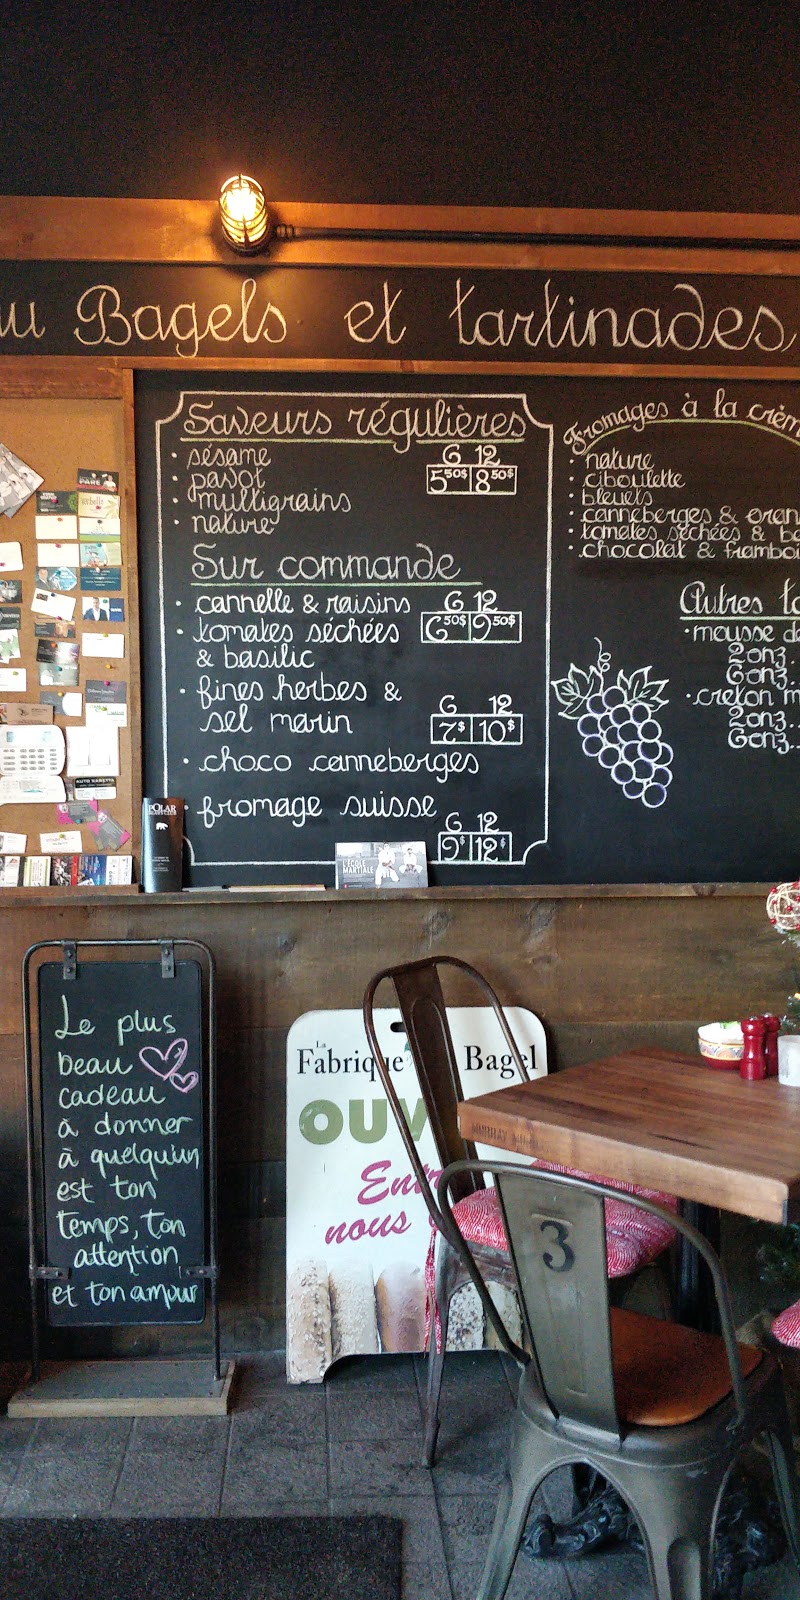 Bagels et tartinades
Saveurs régulières
• sésame
• pavot
• multigrains
• nature
6 12
5⁵⁰$ 8⁵⁰$
Sur commande
• cannelle & raisins
• tomates séchées
& basilic
6 12
6⁵⁰$ 9⁵⁰$
• fines herbes &
sel marin
6 12
7$ 10$
• choco canneberges
• fromage suisse
6 12
9$ 12$
Fromages à la
• nature
• ciboulette
• bleuets
• canneberges &
• tomates séchées &
• chocolat &
Autres
• mousse
2onz..
6onz..
• creton
2onz..
6onz..
POLAR
L'ÉCOLE
MARTIALE
Le plus
beau
cadeau
à donner
à quelqu'un
est ton
temps, ton
attention
et ton amour
La
Fabrique Bagel
nous
3